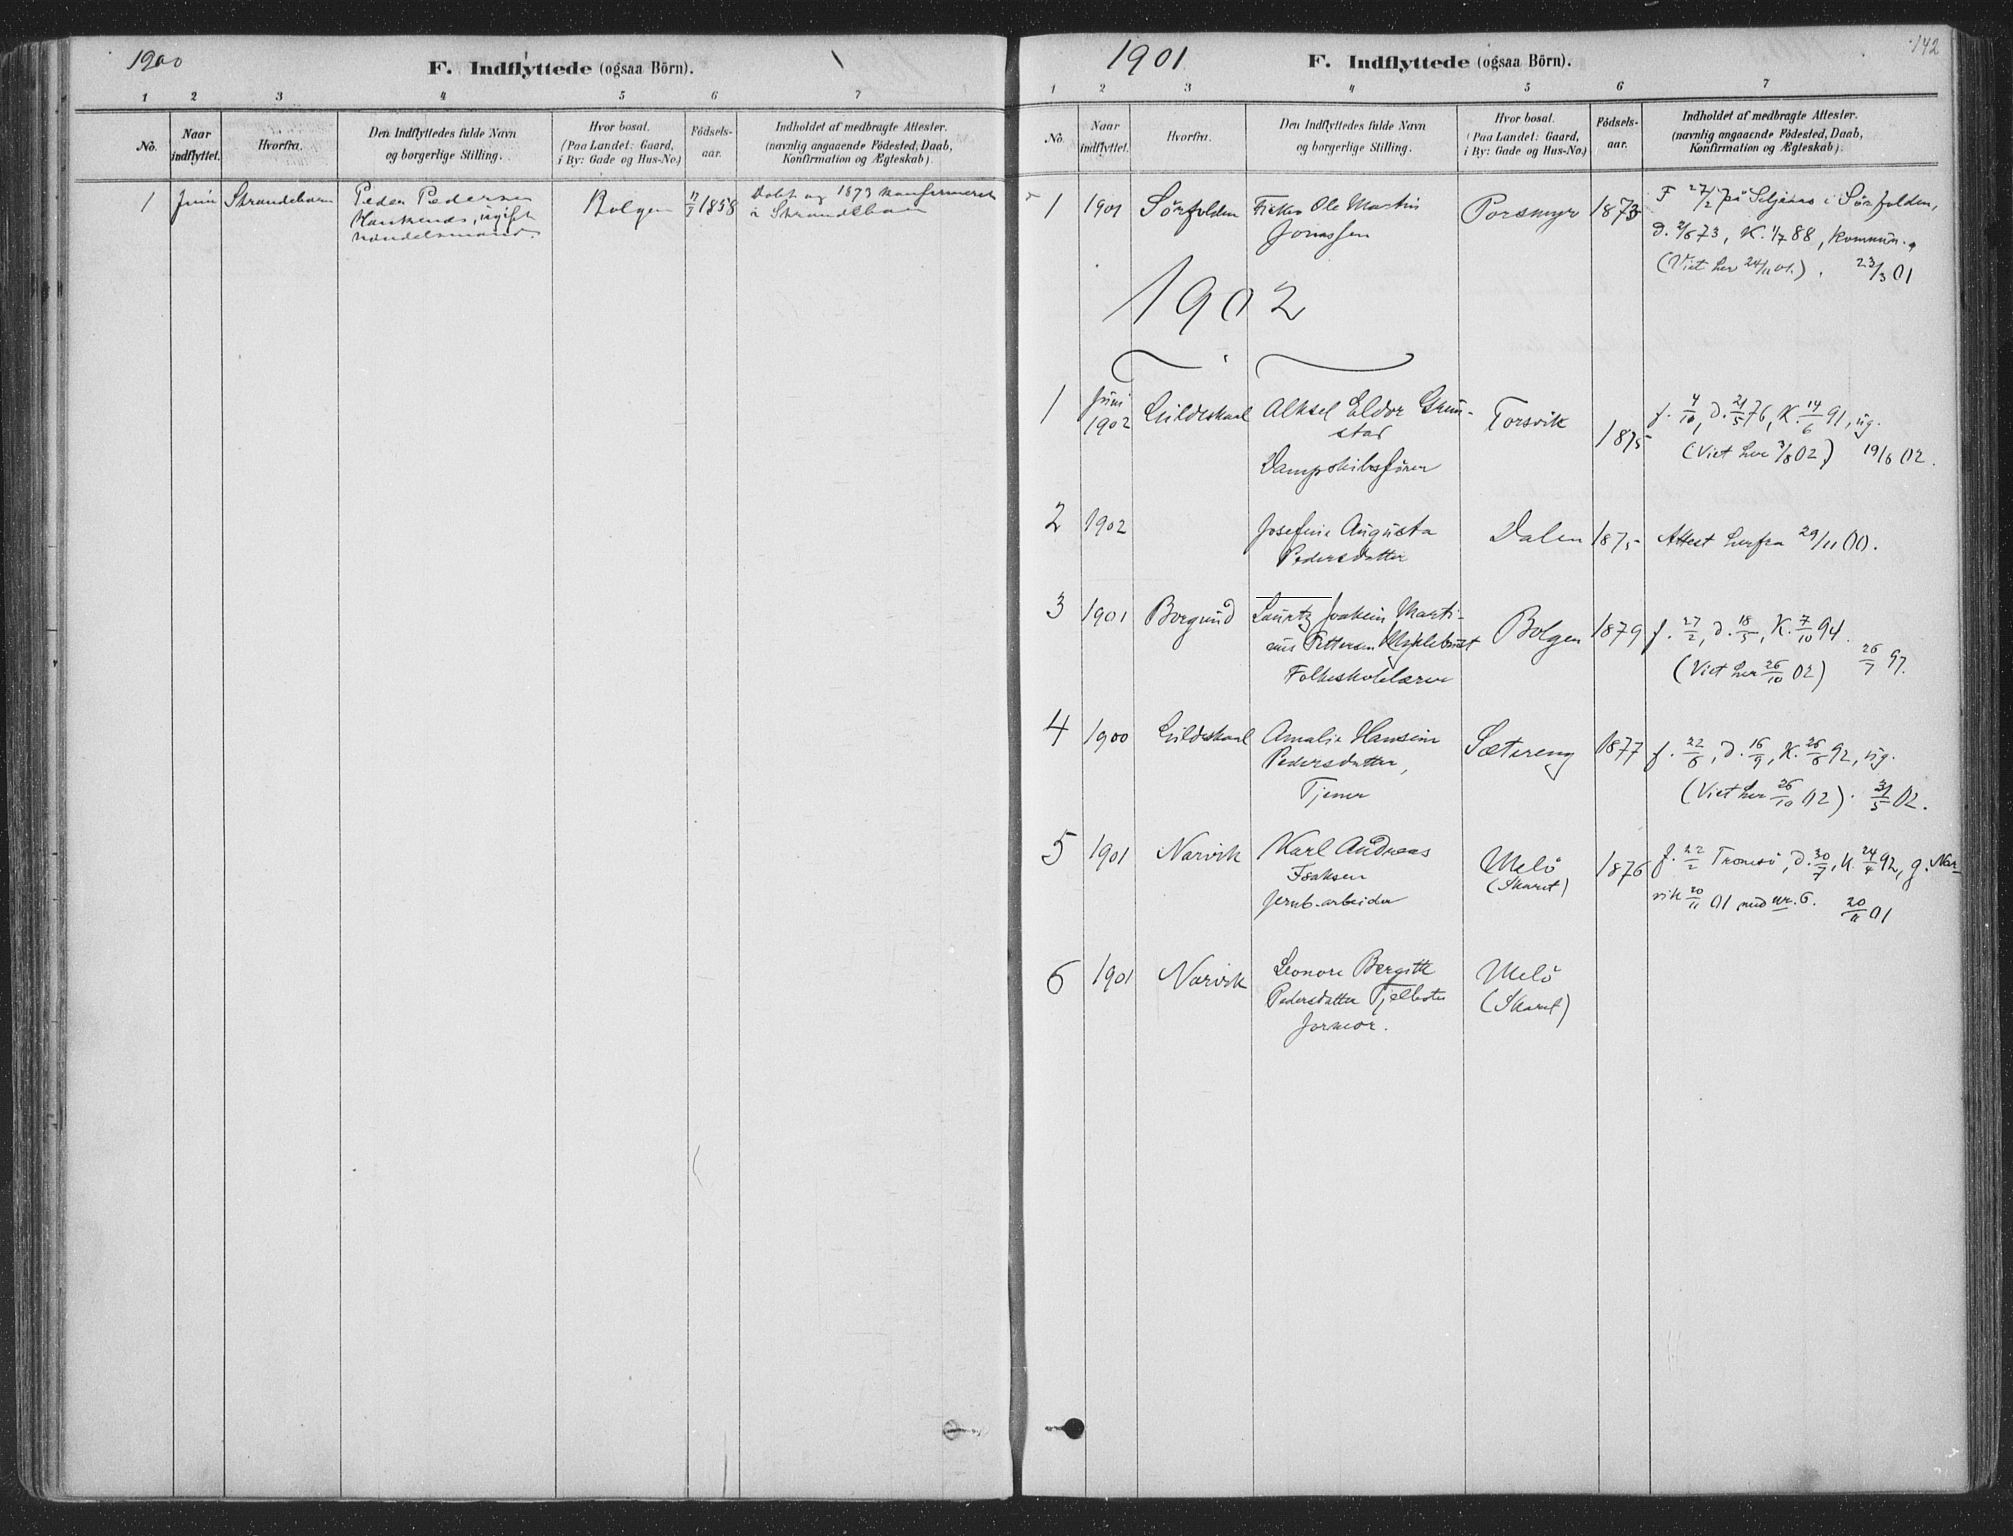 1900
F. Indflyttede (ogsaa Börn).
1 2 3 4 5 6 7
No.
Naar indflyttet.
Hvorfra.
Den Indflyttedes fulde Navn
og borgerlige Stilling.
Hvor bosat.
(Paa Landet: Gaard,
i By: Gade og Hus-No.)
Födsels-
aar.
Indholdet af medbragte Attester.
(navnlig angaaende Födested, Daab,
Konfirmation og Ægteskab).
1 Juni Strandebarm Peder Pedersen Bolgen 17/9 1858 Dobt og 1873 konfirmeret
ugift i Strandebarm
handelsmand.
1901
142
F. Indflyttede (ogsaa Börn).
1 2 3 4 5 6 7
No.
Naar indflyttet.
Hvorfra.
Den Indflyttedes fulde Navn
og borgerlige Stilling.
Hvor bosat.
(Paa Landet: Gaard,
i By: Gade og Hus-No.)
Födsels-
aar.
Indholdet af medbragte Attester.
(navnlig angaaende Födested, Daab,
Konfirmation og Ægteskab).
1 1901 Sörfolden Fisker Ole Martin Porsmyr 1873 F 27/2 på i Sörfolden,
Jonassen D. 2/6 73, K. 1/7 88, kommun.
(Viet her 24/11 01.). 23/3 01
1902
1 Juni 1902 Gildeskaal Alksel Eldor Grim- Torsvik 1875 f. 4/10, D. 21/5 76, K. 14/6 91, ug.
stad (Viet her 3/8 02) 19/6 02.
Dampskibsförer
2 1902 Josefine Augusta Dalen 1875 Attest herfra 29/11 00.
Pedersdatter
3 1901 Borgund Lauritz Joakim Marti- Bolgen 1879 f. 27/2, D. 18/5, K. 7/10 94.
nus Pettersen Myklebust (Viet her 26/10 02) 26/7 97.
Folkeskolelærer
4 1900 Gildeskaal Amalie Hansine Sætereng 1877 f. 22/8, D. 16/9, K. 26/6 92, ug.
Pedersdatter, (Viet her 26/10 02). 31/5 02.
Tjener
5 1901 Narvik Karl Andreas Melö 1876 f. 22/2 Tromsö, D. 30/7, K. 24/4 92, g. Nar-
Isaksen (Skaret) vik 20/11 01 med nr. 6. 20/11 01
Jernb.arbeider
6 1901 Narvik Leonore Bergitte Melö
Pedersdatter (Skaret)
Jormor.